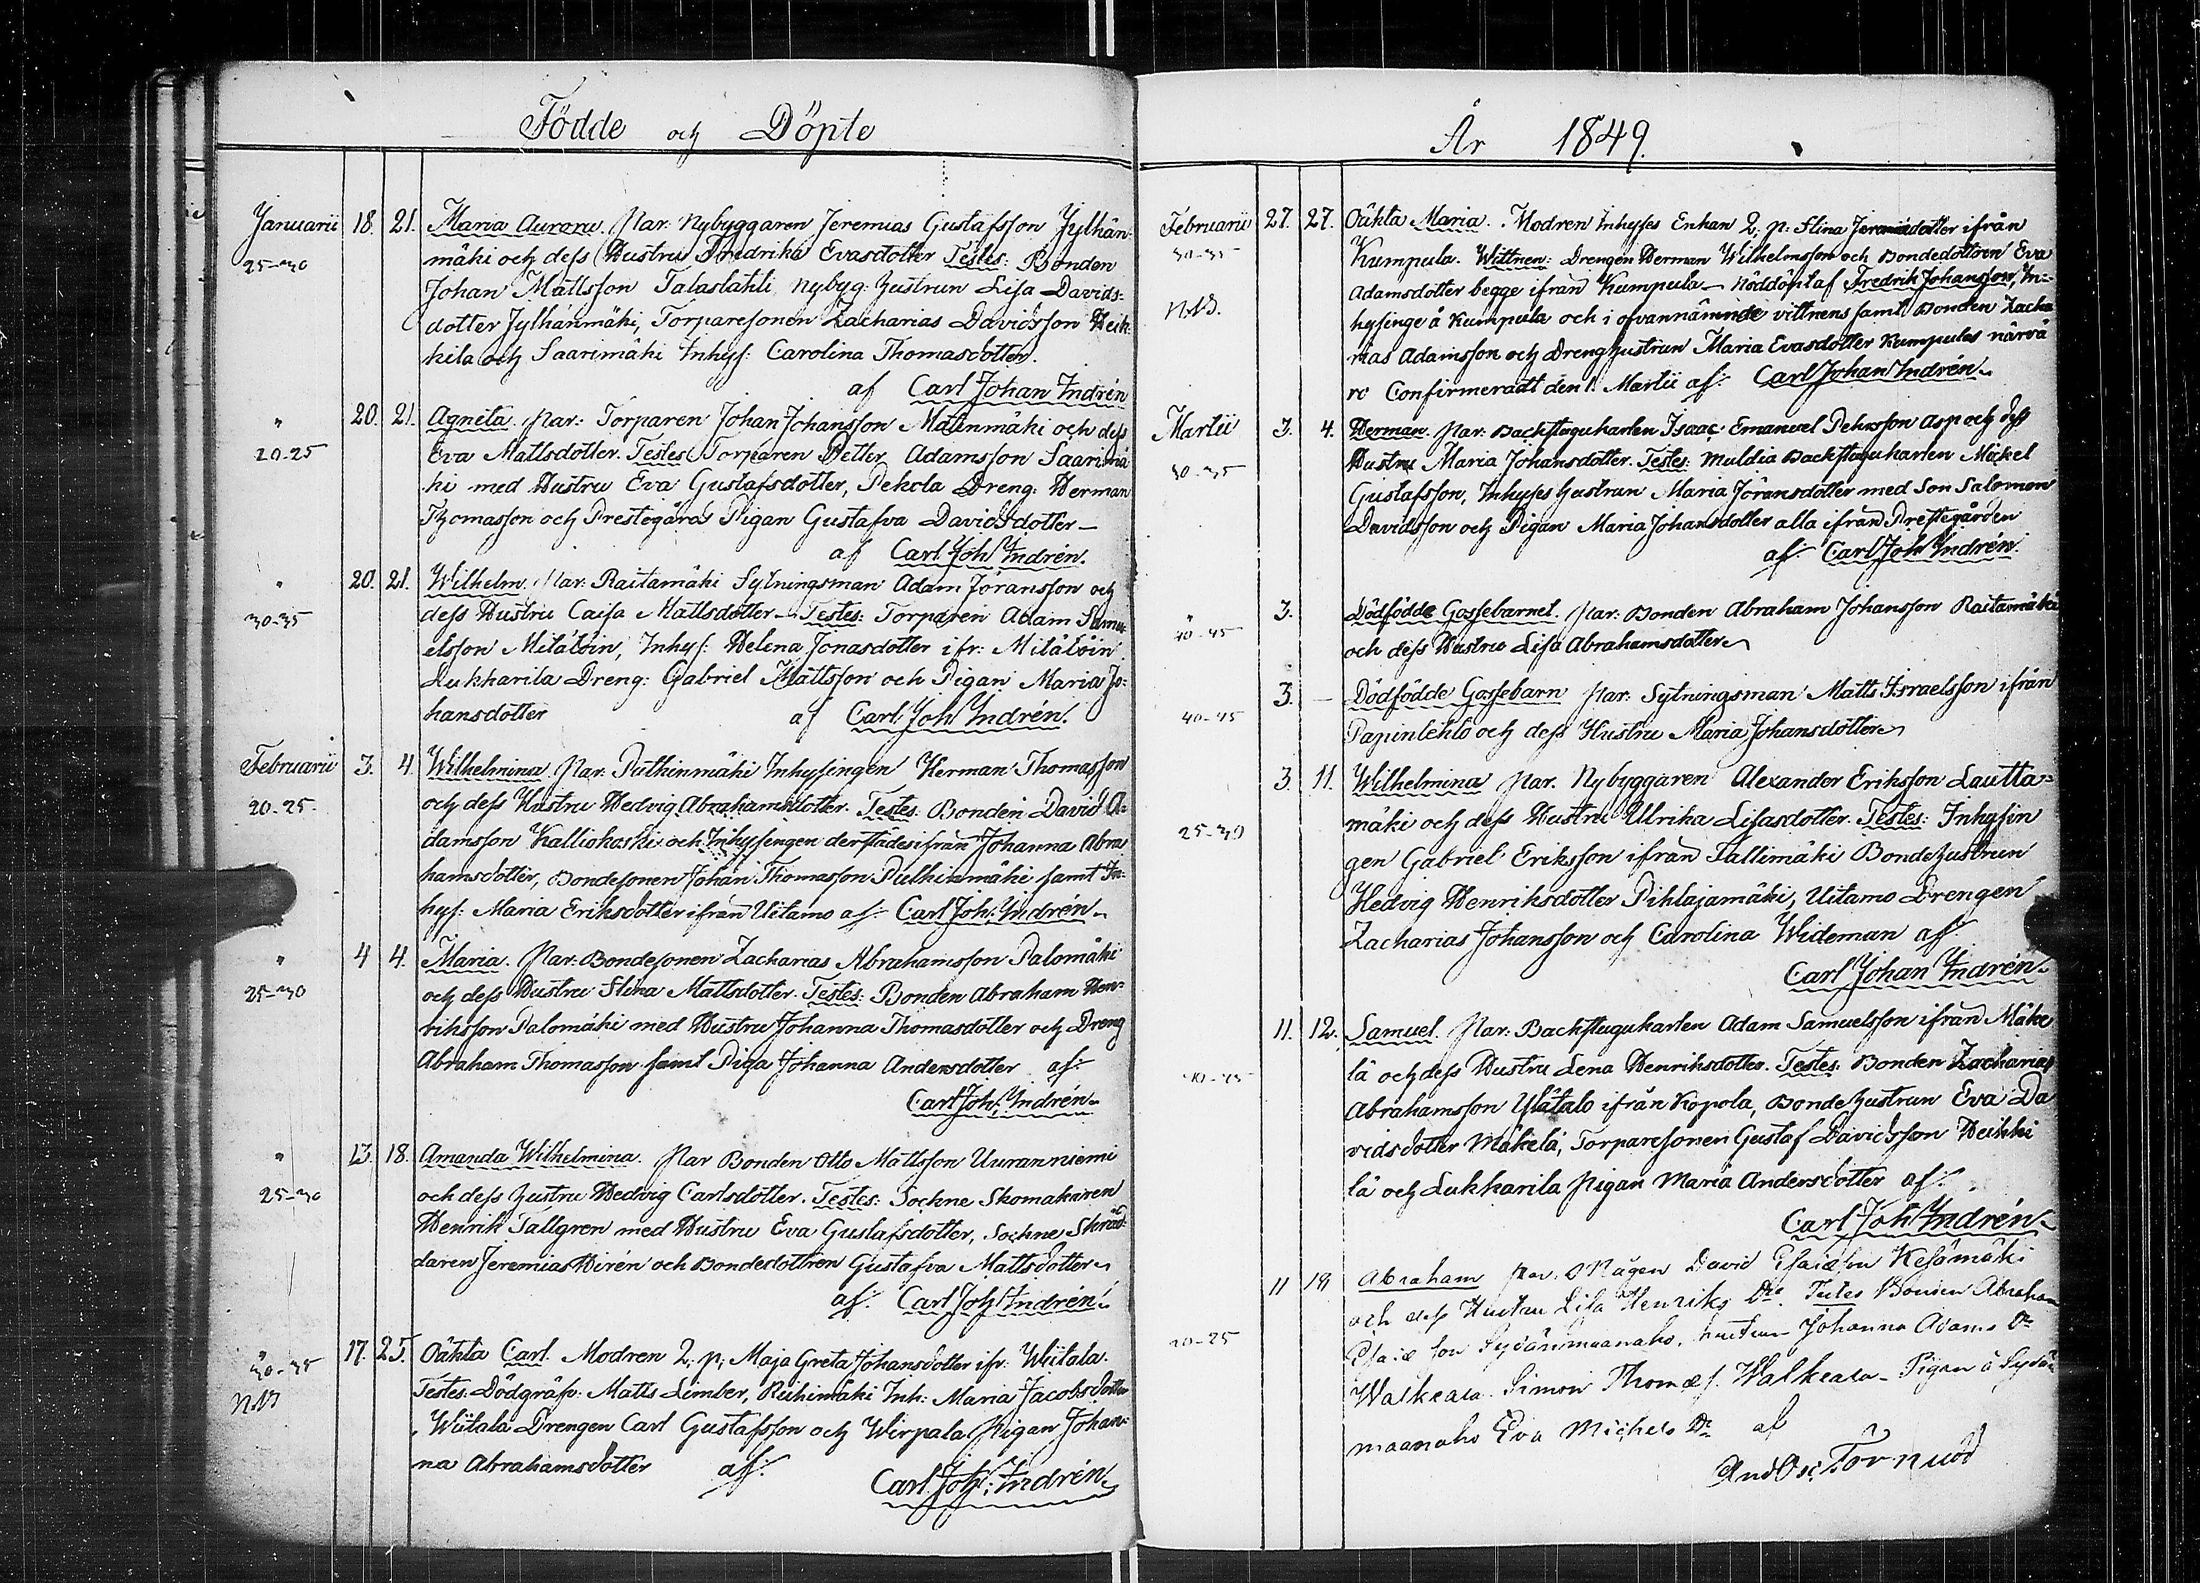 Födde och Döpte
Januarii 18. 21. Maria Aurora. Par. Nybyggaren Jeremias Gustafsson Jylhän-
25-30 mäki och dess Hustru Fredrika Evasdotter Testes: Bonden
Johan Mattsson Talaslahti, nybyg: hustrun Lisa Davids-
dotter Jylhänmäki, Torparesonen Zacharias Davidsson Heik-
kila och Saarimäki Inhys: Carolina Thomasdotter.
af Carl Johan Indrén
" 20. 21. Agneta. Par: Torparen Johan Johansson Matinmäki och dess
20-25 Eva Mattsdotter. Testes Torparen Petter Adamsson Saarimä
ki med Hustru Eva Gustafsdotter, Pekola Dreng: Herman
Thomasson och Prestegårds Pigan Gustafva Davidsdotter-
af Carl Joh Indrén.
" 20. 21. Wilhelm. Par: Raitamäki Sytningsman Adam Jöransson och
30-35 dess Hustru Caisa Mattsdotter - Testes: Torparen Adam Samu-
elsson Mitätöin, Inhys: Helena Jonasdotter ifr: Mitätöin
Lukkarila Dreng: Gabriel Mattsson och Pigan Maria Jo-
hansdotter af Carl Joh Indrén.
Februarii 3. 4. Wilhelmina Par: Pulkinmäki Inhysingen Herman Thomasson
20-25. och dess Hustru Hedvig Abrahamsdotter. Testes: Bonden David A-
damsson Kalliokoski och Inhysengen derstädesifrån Johanna Abra
hamsdotter, Bondesonen Johan Thomasson Pulkinmäki samt In-
hys: Maria Eriksdotter ifrån Uitamo af: Carl Joh: Indrén.
" 4 4. Maria. Par: Bondesonen Zacharias Abrahamsson Palomäki
25-30 och dess Hustru Stina Mattsdotter. Testes: Bonden Abraham Hen-
riksson Palomäki med Hustru Johanna Thomasdotter och Dreng
Abraham Thomasson samt Piga Johanna Andersdotter af:
Carl Joh: Indrén.
" 13. 18. Amanda Wilhelmina. Par Bonden Otto Mattsson Uuranniemi
25-30 och dess hustru Hedvig Carlsdotter. Testes: Sockne Skomakaren
Henrik Tallgren med Hustru Eva Gustafsdotter, Sockne Skräd-
daren Jeremias Hirén och Bondedottren Gustafva Mattsdotter
af. Carl Joh Indrén.
" 17. 25. Oäkta Carl. Modren Q; p; Maja Greta Johansdotter ifr: Wiitala.
30-35 Testes: Dödgräfv: Matts Limber, Riihimäki Inh: Maria Jacobsdotter
NB Wiitala Drengen Carl Gustafsson och Wirpala Pigan Johan-
na Abrahamsdotter af: Carl Joh: Indrén.
År 1849.
Februarii 27. 27. Oäkta Maria. Modren Inhyses Enkan Q; p: Stina Jeremiædotter ifrån
30-35 Kumpula. Wittnen: Drengen Herman Wilhelmsson och Bondedottren Eva
Adamsdotter begge ifrån Kumpula - Nöddöpt af Fredrik Johansson, In-
NB. hysinge å Kumpula och i ofvannämnde vittnens samt Bonden Zacha
rias Adamsson och Drenghustrun Maria Evasdotter Kumpulas närva
ro Confirmeradt den 1. Martii af: Carl Johan Indrén.
Martii 3. 4. Herman. Par: Backstugukarlen Isaac Emanuel Pehrsson Asp och dess
30-35 Hustru Maria Johansdotter. Testes: Muldia Backstugukarlen Mickel
Gustafsson, Inhyses hustrun Maria Jöransdotter med Son Salomon
Davidsson och Pigan Maria Johansdotter alla ifrån Prestegården
af: Carl Joh Indrén.
" 3. Dödfödde Gossebarnet. Par: Bonden Abraham Johansson Raitamäki
40-45 och dess Hustru Lisa Abrahamsdotter
3. - Dödfödde Gossebarn Par: Sytningsman Matts Israelsson ifrån
40-45 Papinlehto och dess Hustru Maria Johansdotter
3. 11. Wilhelmina Par. Nybyggaren Alexander Eriksson Lautta-
mäki och dess Hustru Ulrika Lisasdotter. Testes: Inhysin
25-30 gen Gabriel Eriksson ifrån Tallimäki Bondehustrun
Hedvig Henriksdotter Pihlajamäki, Uitamo Drengen
Zacharias Johansson och Carolina Wideman af:
Carl Johan Indrén.
11. 12. Samuel. Par: Backstugukarlen Adam Samuelsson ifrån Mäke
40-45 lä och dess Hustru Lena Henriksdotter. Testes: Bonden Zacharias
Abrahamsson Ylätalo ifrån Kopola, Bondehustrun Eva Da
vidsdotter Mäkelä, Torparesonen Gustaf Davidsson Heikki
lä och Lukkarila Pigan Maria Andersdotter af:
Carl Joh Indrén.
11 18 Abraham Par. Mågen David Esaiæson Kesämäki
och dess Hustru Lisa Henriks Dr. Testes Bonden Abraham
20-25 Esaiæ son Sydänmaanaho, hustrun Johanna Adams Dr
Walkeala. Simon Thomæs. Walkeala - Pigan å Sydän
maanaho Eva Michels Dr af
And Osc: Törnudd